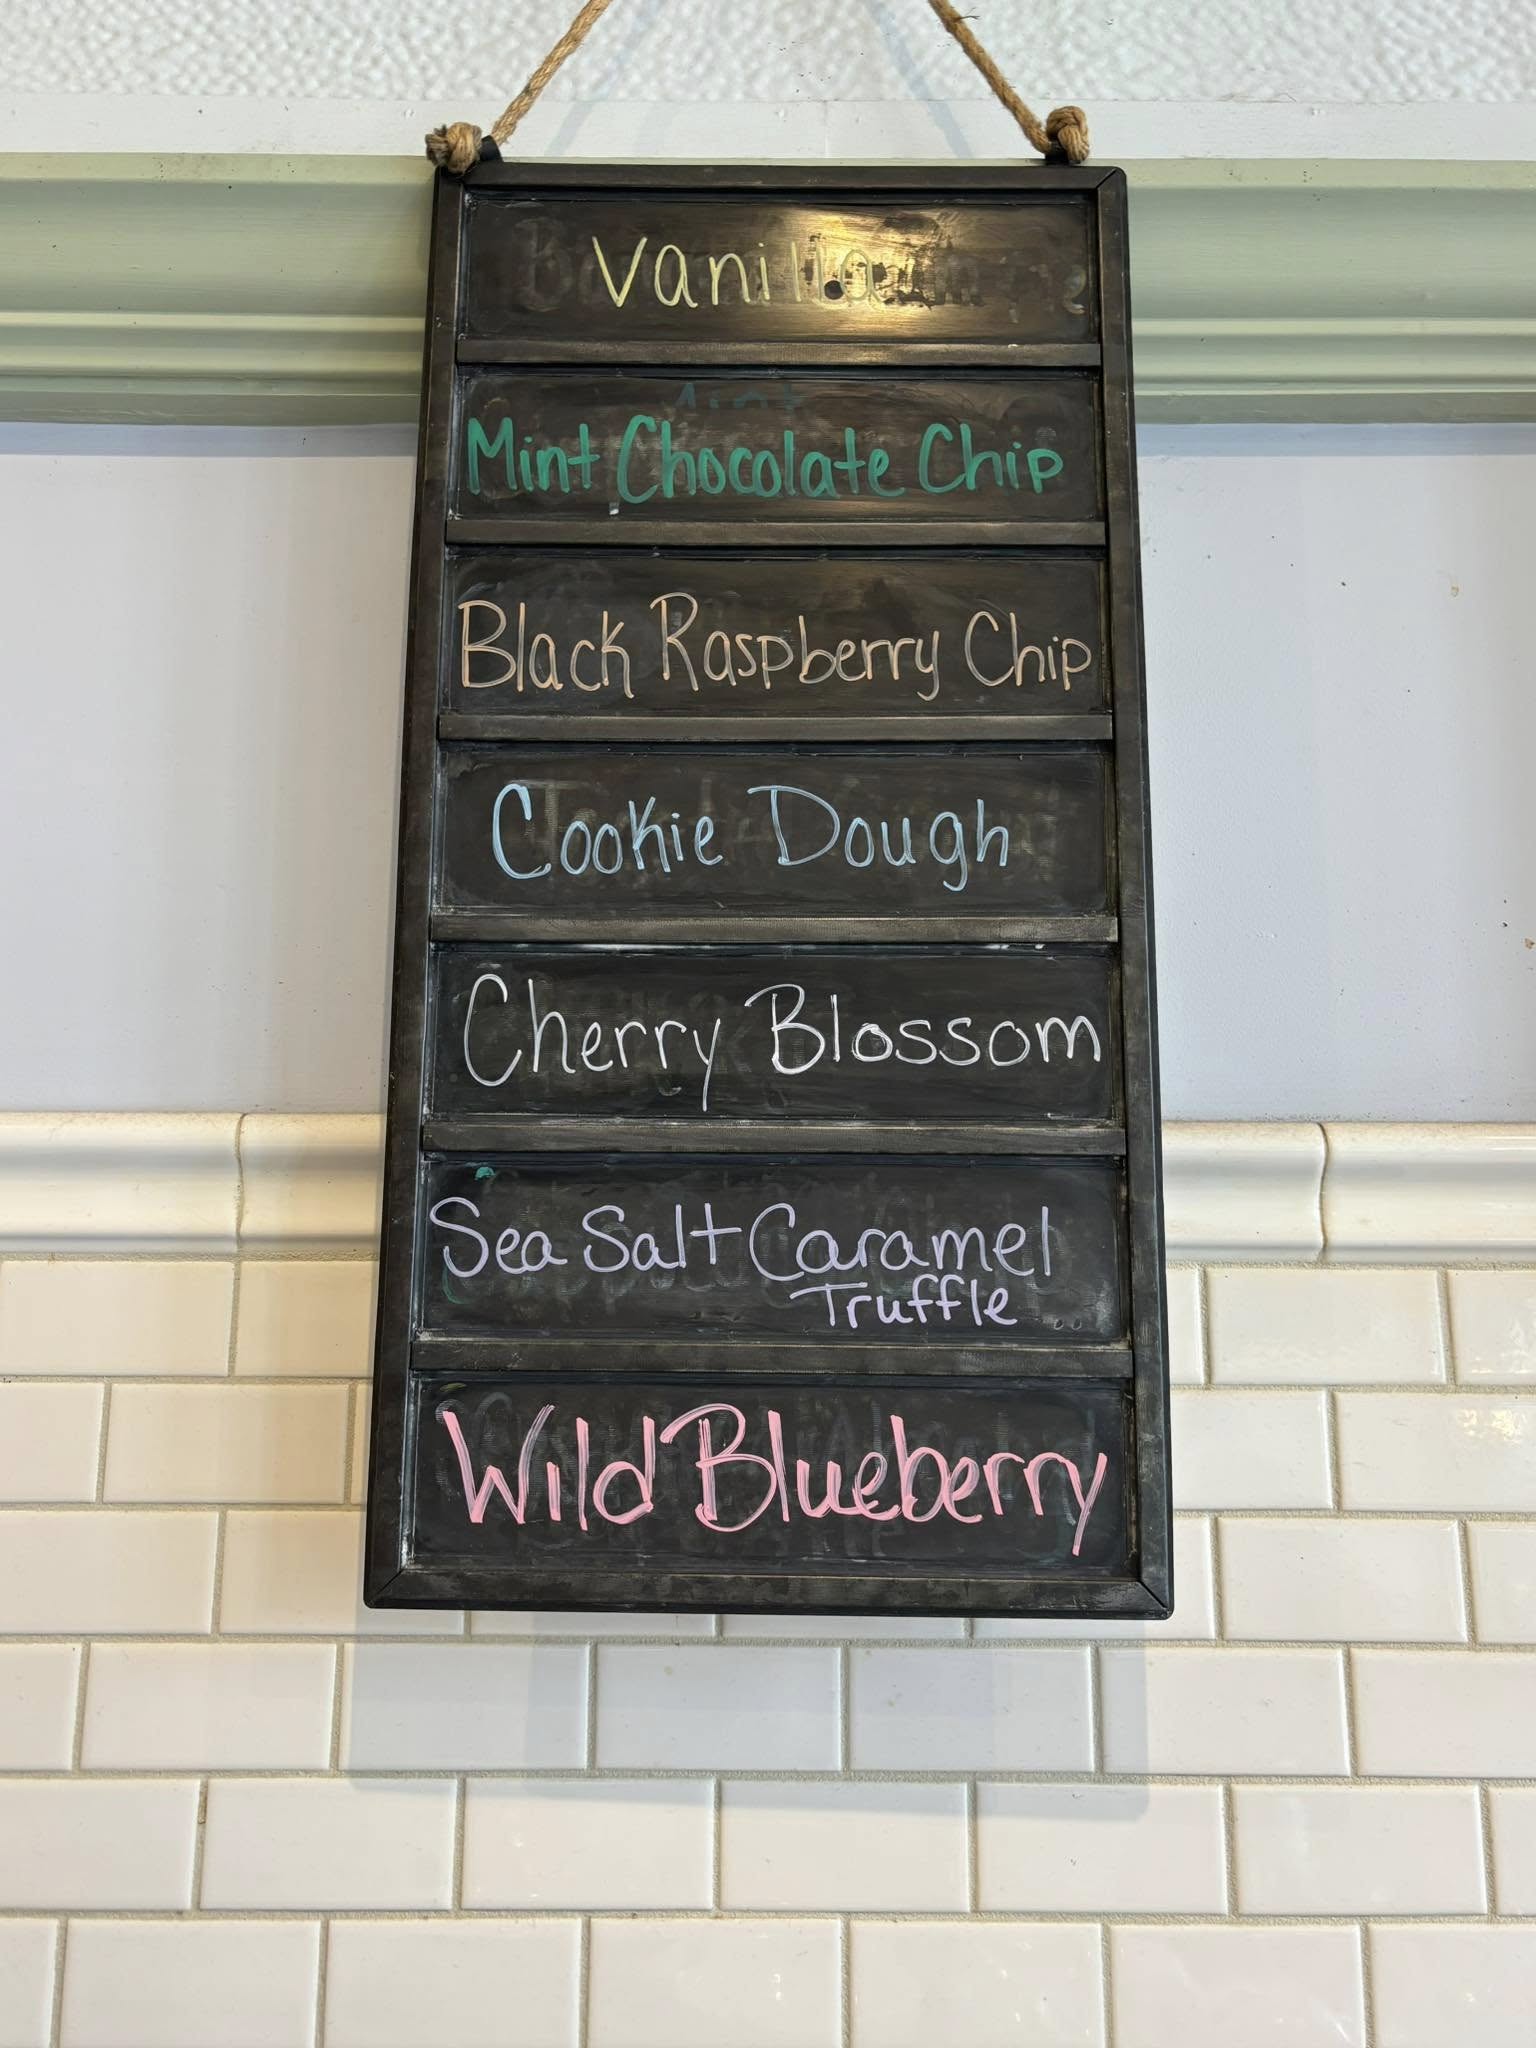 Vanilla
Mint Chocolate Chip
Black Raspberry Chip
Cookie Dough
Cherry Blossom
Sea Salt Caramel
Truffle
Wild Blueberry